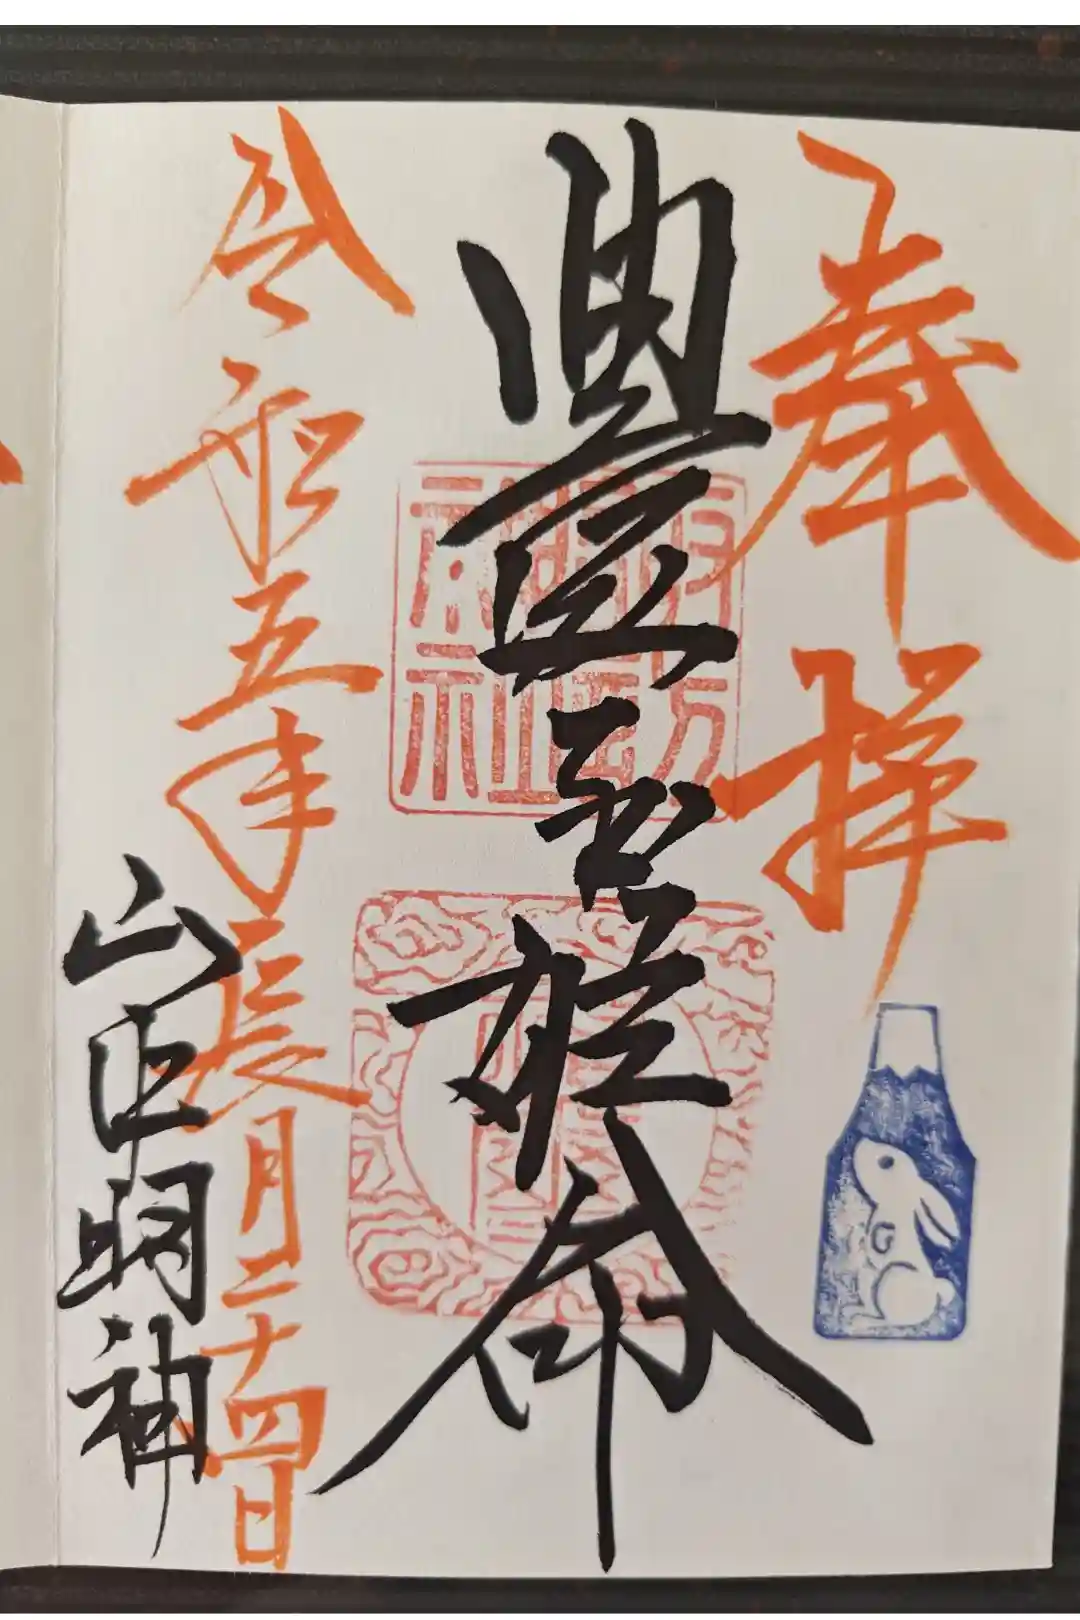 奉拝
豊玉姫命
令和五年長月二十四日
山 明神
神社